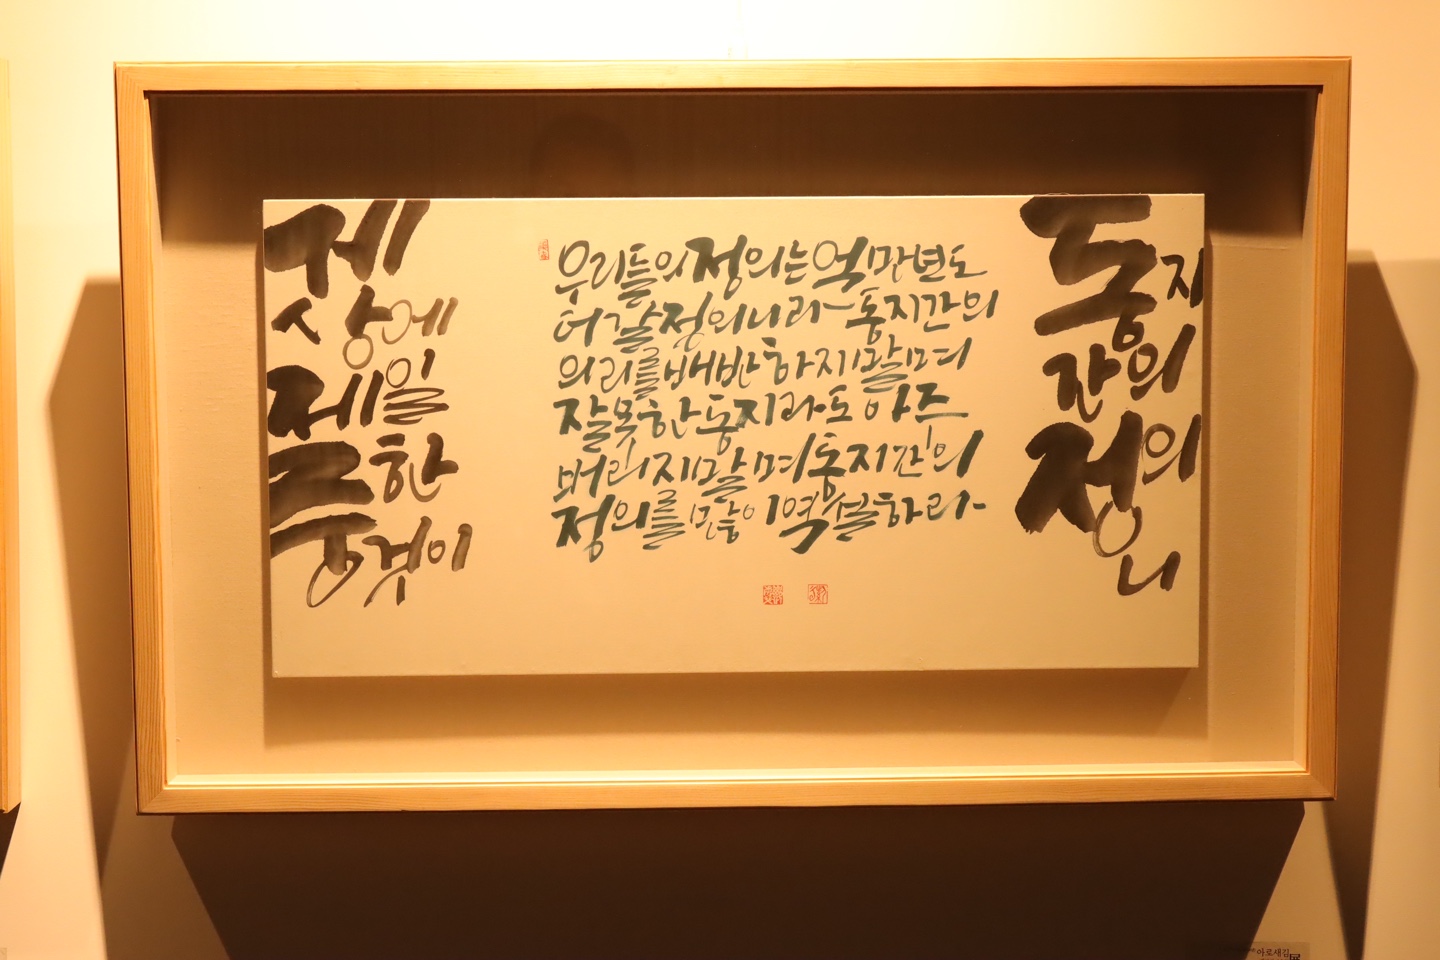 세상에
제일
중한
것이
동지
간의
정의
니
우리들의 정의는 억만년도
더 갈 정의니라 동지간의
의리를 배반하지 말며
잘못한 동지라도 아주
버리지 말며 동지간의
정의를 많이 역설하라
아로새김展